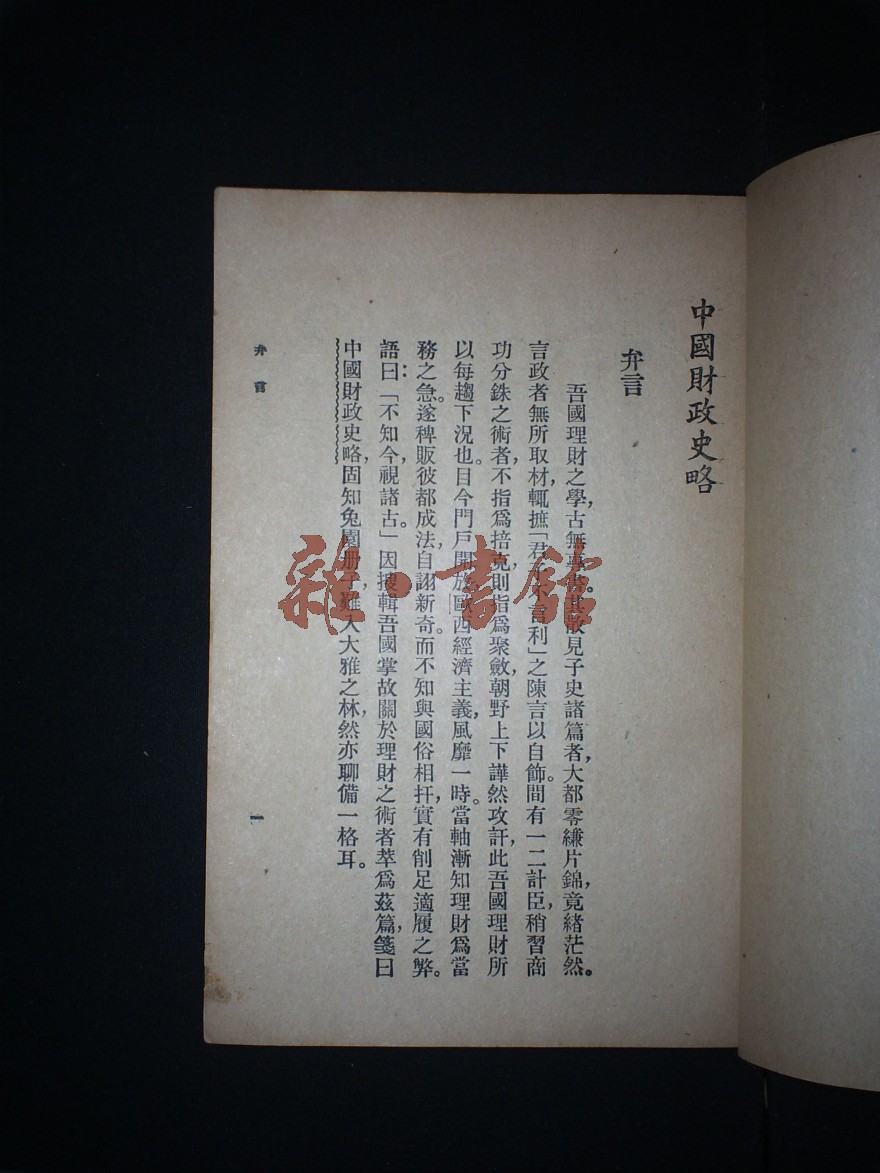 中國財政史略
弁言
吾國理財之學，古無專書。其散見子史諸篇者，大都零縑片錦，竟緒茫然。
言政者無所取材，輒摭「君子不言利」之陳言以自飾。間有一二計臣，稍習商
功分銖之術者，不指爲掊克，則指爲聚斂，朝野上下譁然攻訐，此吾國理財所
以每趨下況也。目今門戶開放，歐西經濟主義，風靡一時。當軸漸知理財爲當
務之急。遂稗販彼都成法，自詡新奇。而不知與國俗相扞，實有削足適履之弊。
語曰：「不知今，視諸古。」因搜輯吾國掌故關於理財之術者萃爲茲篇，箋曰
中國財政史略，固知兔園册子，難入大雅之林，然亦聊備一格耳。
弁言
一
雜·書館